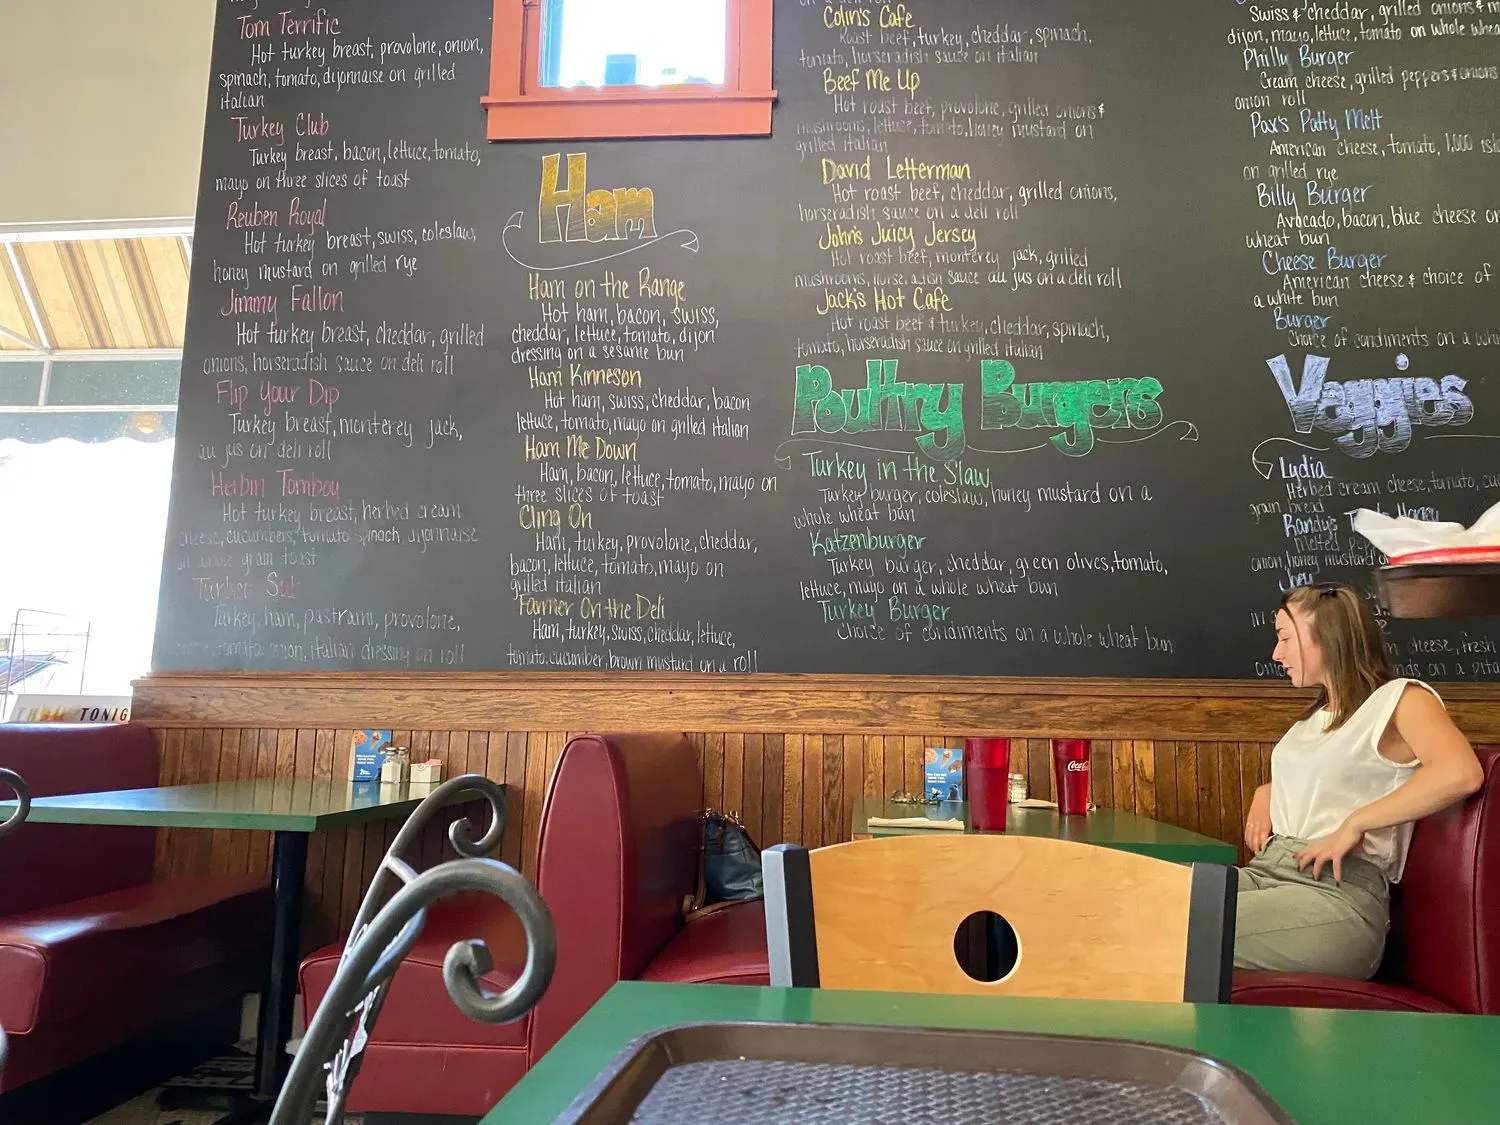 Tom Terrific
Hot turkey breast, provolone, onion,
spinach, tomato, dijonnaise on grilled
italian
Turkey Club
Turkey breast, bacon, lettuce, tomato,
mayo on three slices of toast
Reuben Royal
Hot turkey breast, swiss, coleslaw,
honey mustard on grilled rye
Jimmy Fallon
Hot turkey breast, cheddar, grilled
onions, horseradish sauce on deli roll
Flip Your Dip
Turkey breast, monterey jack,
au jus on deli roll
Herbin Tomboy
Hot turkey breast, herbed cream
cheese, cucumbers, tomato spinach, dijonnaise
on whole grain toast
Turkey Sub
Turkey, ham, pastrami, provolone,
tomato, onion, italian dressing on roll
Ham
Ham on the Range
Hot ham, bacon, swiss,
cheddar, lettuce, tomato, dijon
dressing on a sesame bun
Ham Kinneson
Hot ham, swiss, cheddar, bacon
lettuce, tomato, mayo on grilled italian
Ham Me Down
Ham, bacon, lettuce, tomato, mayo on
three slices of toast
Cling On
Ham, turkey, provolone, cheddar,
bacon, lettuce, tomato, mayo on
grilled italian
Farmer On the Deli
Ham, turkey, swiss, cheddar, lettuce,
tomato, cucumber, brown mustard on a roll
on a deli roll
Colin's Cafe
Roast beef, turkey, cheddar, spinach,
tomato, horseradish sauce on italian
Beef Me Up
Hot roast beef, provolone, grilled onions &
mushrooms, lettuce, tomato, honey mustard on
grilled italian
David Letterman
Hot roast beef, cheddar, grilled onions,
horseradish sauce on a deli roll
John's Juicy Jersey
Hot roast beef, monterey jack, grilled
mushrooms, horseradish sauce au jus on a deli roll
Jack's Hot Cafe
Hot roast beef & turkey, cheddar, spinach,
tomato, horseradish sauce on grilled italian
Poultry Burgers
Turkey in the Slaw
Turkey burger, coleslaw, honey mustard on a
whole wheat bun
Katzenburger
Turkey burger, cheddar, green olives, tomato,
lettuce, mayo on a whole wheat bun
Turkey Burger
Choice of condiments on a whole wheat bun
Swiss & cheddar, grilled onions &
dijon, mayo, lettuce, tomato on whole
Philly Burger
Cream cheese, grilled peppers & onions
onion roll
Pax's Patty Melt
American cheese, tomato, 1,000
on grilled rye
Billy Burger
Avocado, bacon, blue cheese
wheat bun
Cheese Burger
American cheese & choice of
a white bun
Burger
Choice of condiments on a
Veggies
Lydia
Herbed cream cheese, tomato,
grain bread
Randy's Honey
melted
onion, honey mustard
Joey
cheese, fresh
on a pita
TONIG
Coca-Cola